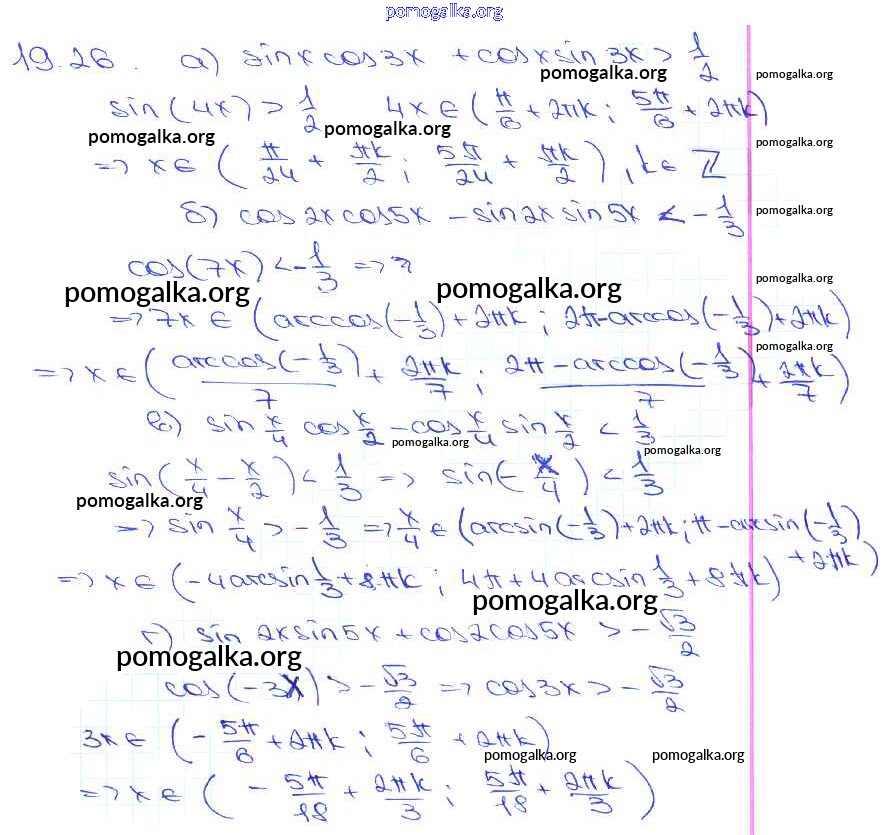 pomogalka.org
19.26. а) sinx cos3x + cosx sin 3x > 1/2
pomogalka.org pomogalka.org
sin(4x) > 1/2 4x ∈ (π/6 + 2πk ; 5π/6 + 2πk)
pomogalka.org pomogalka.org pomogalka.org
=> x ∈ (π/24 + πk/2 ; 5π/24 + πk/2), k ∈ Z
б) cos2x cos5x - sin2x sin5x < -1/3
pomogalka.org
cos(7x) < -1/3 =>
pomogalka.org pomogalka.org pomogalka.org
=> 7x ∈ (arccos(-1/3) + 2πk ; 2π-arccos(-1/3) + 2πk)
pomogalka.org
=> x ∈ (arccos(-1/3)/7 + 2πk/7 ; 2π - arccos(-1/3)/7 + 2πk/7)
в) sin x/4 cos x/2 - cos x/4 sin x/2 < 1/3
pomogalka.org pomogalka.org
sin(x/4 - x/2) < 1/3 => sin(-x/4) < 1/3
pomogalka.org
=> sin x/4 > -1/3 => x/4 ∈ (arcsin(-1/3) + 2πk ; π - arcsin(-1/3) + 2πk)
=> x ∈ (-4arcsin 1/3 + 8πk ; 4π + 4arcsin 1/3 + 8πk)
pomogalka.org
г) sin 2x sin5x + cos2cos5x > -√3/2
pomogalka.org
cos(-3x) > -√3/2 => cos3x > -√3/2
3x ∈ (-5π/6 + 2πk ; 5π/6 + 2πk)
pomogalka.org pomogalka.org
=> x ∈ (-5π/18 + 2πk/3 ; 5π/18 + 2πk/3)